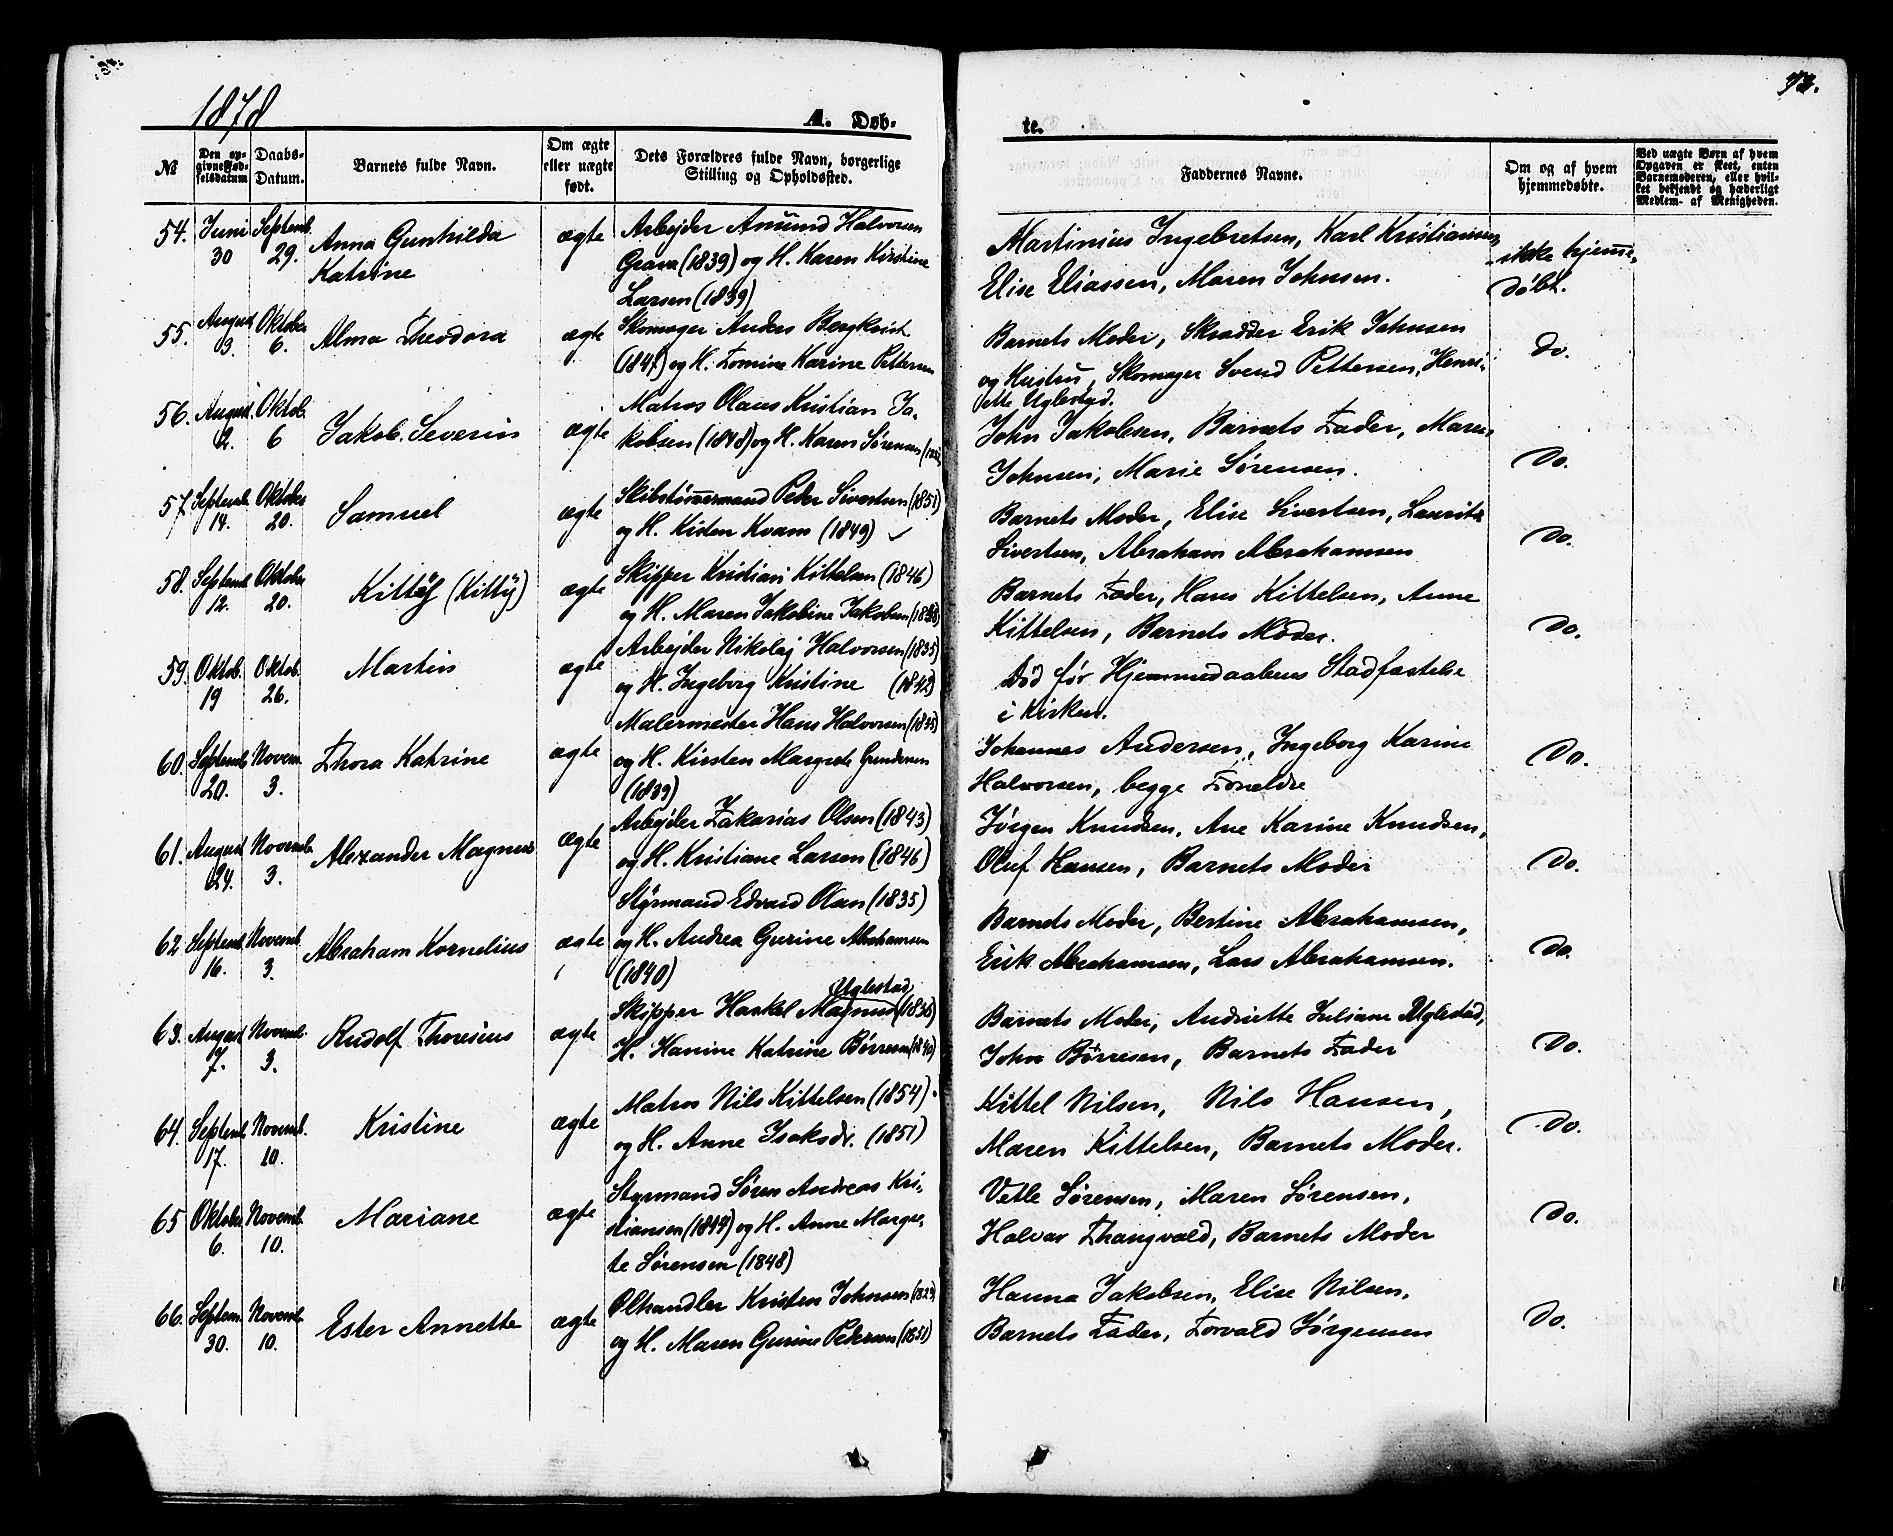 1878
A. Døb-
te.
73.
№
Den op-
givne Fød-
selsdatum
Daabs-
Datum.
Barnets fulde Navn.
Om ægte
eller uægte
født.
Dets Forældres fulde Navn, borgerlige
Stilling og Opholdssted.
Faddernes Navne.
Om og af hvem
hjemmedøbte.
Ved uægte Børn af hvem
Opgaven er skeet, enten
Barnemoderen, eller hvil-
ket bekjendt og hæderligt
Medlem af Menigheden.
54. Juni 30 Septemb. 29. Anna Gunhilda
Katrine
ægte
Arbejder Amund Halvorsen
Grava (1839) og H. Karen Kirstine
Larsen (1839)
Martinius Ingebretsen, Karl Kristiansen,
Elise Eliassen, Maren Johnsen.
ikke hjemme-
døbt.
55. August 3. Oktober 6. Alma Theodora
ægte
Skomager Anders Bergkvist
(1847) og H. Tomine Karine Pettersen
Barnets Moder, Skrædder Erik Johnsen
og Hustru, Skomager Svend Pettersen, Henri-
ette Uglestad.
do.
56. August 2. Oktob. 6 Jakob Severin
ægte
Matros Olaus Kristian Ja-
kobsen (1848) og H. Karen Sørensen
John Jakobsen, Barnets Fader, Maren
Johnsen, Marie Sørensen.
do.
57. Septemb. 14. Oktober 20. Samuel
ægte
Skibstømmermand Peder Sivertsen (1851)
og H. Kisten Kvam (1849)
Barnets Moder, Elise Sivertsen, Lauritz
Sivertsen, Abraham Abrahamsen
do.
58. Septemb. 12. Oktober 20. Kittÿ (Kittÿ)
ægte
Skipper Kristian Kittelsen (1846)
og H. Maren Jakobine Jakobsen
Barnets Fader, Hans Kittelsen, Anne
Kittelsen, Barnets Moder.
do.
59. Oktob. 19 Oktob. 26. Martin
ægte
Arbejder Nikolaj Halvorsen (1835)
og H. Ingeborg Kristine (1842)
Død før Hjemmedaabens Stadfæstelse
i Kirken.
60. Septemb. 20. Novem. 3. Thora Katrine
ægte
Malermester Hans Halvorsen (1835)
og H. Kirsten Margrete Gundersen
(1839)
Johannes Andersen, Ingeborg Karine
Halvorsen, begge Forældre
Do.
61. August 24. Novemb. 3. Alexander Magnus
ægte
Arbejder Zakarias Olsen (1843)
og H. Kristiane Larsen (1846)
Jørgen Knudsen, Ane Karine Knudsen,
Oluf Hansen, Barnets Moder
do.
62 Septemb. 16. Novemb. 3. Abraham Kornelius
ægte
Styrmand Edvard Olsen (1835)
og H. Andrea Gurine Abrahamsen
(1840)
Barnets Moder, Bertine Abrahamsen,
Erik Abrahamsen, Lars Abrahamsen.
do.
63. August 7. Novemb. 3. Rudolf Thoresius
ægte
Uglestad
Skipper Haakel Magnus
H. Hanine Katrine Børresen
Barnets Moder, Andriette Juliane Uglestad,
John Børresen, Barnets Fader
do.
64. Septemb. 17. Novemb. 10. Kristine
ægte
Matros Nils Kittelsen (1854)
og H. Anne Isaksdr. (1851)
Kittel Nilsen, Nils Hansen,
Maren Kittelsen, Barnets Moder.
do.
65 Oktober 6. Novemb. 10. Mariane
ægte
Styrmand Søren Andreas Kri-
stiansen (1849) og H. Anne Margre-
te Sørensen (1848)
Vetle Sørensen, Maren Sørensen,
Halvar Thangvald, Barnets Moder
do.
66. Septem. 30. Novemb. 10. Ester Annette
ægte
Ølhandler Kristen Johnsen (1823)
og H. Maren Gurine Petersen (1851)
Hanna Jakobsen, Elise Nilsen,
Barnets Fader, Torvald Jørgensen
do.